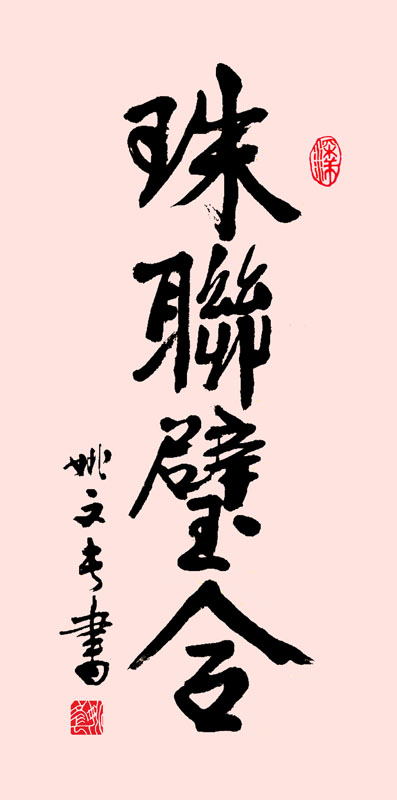 珠聯璧合
姚文书書